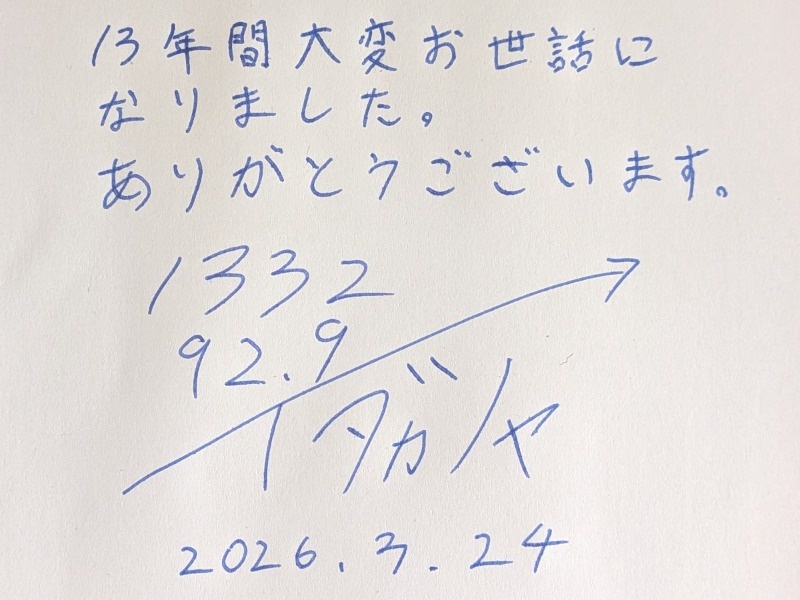 13年間大変お世話に
なりました。
ありがとうございます。
1332
92.9
イダガシヤ
2026.3.24